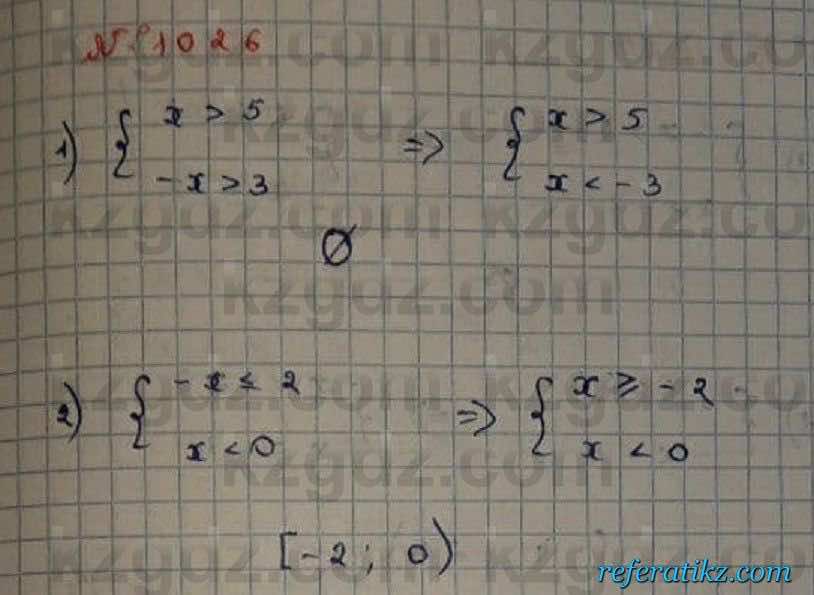 № 1026
1) { x > 5 => { x > 5
-x > 3 x < -3
Ø
2) { -x ≤ 2 => { x ≥ -2
x < 0 x < 0
[-2; 0)
kzgdz.com
referatikz.com